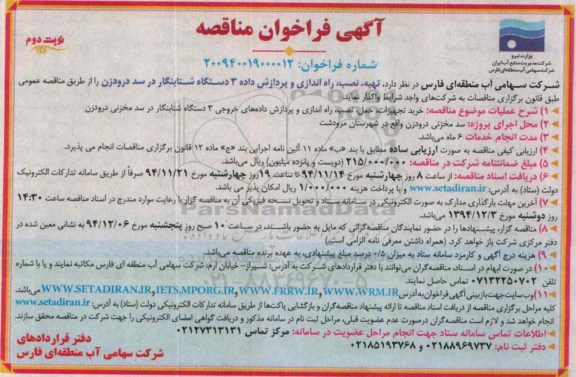 آگهی فراخوان مناقصه
نوبت دوم
وزارت نیرو
شرکت مدیریت منابع آب ایران
شرکت سهامی آب منطقه‌ای فارس
شماره فراخوان: ۲۰۰۹۴۰۰۱۹۰۰۰۰۱۲
شرکت سهامی آب منطقه‌ای فارس در نظر دارد، تهیه، نصب، راه اندازی و پردازش داده ۳ دستگاه شتابنگار در سد درودزن را از طریق مناقصه عمومی
طبق قانون برگزاری مناقصات به شرکت‌های واجد شرایط واگذار نماید.
۱) شرح عملیات موضوع مناقصه: خرید تجهیزات، حمل، نصب، راه اندازی و پردازش داده‌های خروجی ۳ دستگاه شتابنگار
۲) محل اجرای پروژه: سد مخزنی درودزن واقع در شهرستان مرودشت
۳) مدت انجام خدمات ۶ ماه می‌باشد.
۴) ارزیابی کیفی مناقصه به صورت ارزیابی ساده مطابق با بند «ب» ماده ۱۱ آئین نامه اجرایی بند «ج» ماده ۱۲ قانون برگزاری مناقصات انجام می پذیرد.
۵) مبلغ ضمانتنامه شرکت در مناقصه: ۲۱۵/۰۰۰/۰۰۰ (دویست و پانزده میلیون) ریال می‌باشد.
۶) دریافت اسناد مناقصه: از ساعت ۸ روز چهارشنبه مورخ ۹۴/۱۱/۱۴ تا ساعت ۱۹ روز چهارشنبه مورخ ۹۴/۱۱/۲۱ صرفاً از طریق سامانه تدارکات الکترونیکی
دولت (ستاد) به آدرس: www.setadiran.ir و با پرداخت هزینه ۱/۰۰۰/۰۰۰ ریال امکان پذیر می باشد.
۷) آخرین مهلت بارگذاری مدارک به صورت الکترونیکی در سامانه ستاد و تحویل نسخه فیزیکی آن به مناقصه گزار با رعایت موارد مندرج در اسناد مناقصه ساعت ۱۴:۳۰
روز دوشنبه مورخ ۱۳۹۴/۱۲/۳ می‌باشد.
۸) مناقصه گزار، پیشنهادها را در حضور نمایندگان مناقصه‌گرانی که مایل به حضور باشند، در ساعت ۱۰ صبح روز پنجشنبه مورخ ۹۴/۱۲/۰۶ به نشانی معین شده در
دفتر مرکزی شرکت باز خواهد کرد. (همراه داشتن معرفی نامه الزامی است)
۹) هزینه درج آگهی و کارمزد سامانه ستاد به میزان ۰/۵ درصد مبلغ پیشنهادی، به عهده برنده مناقصه می‌باشد.
۱۰) در صورت ابهام در اسناد، مناقصه‌گران می‌توانند با دفتر قراردادهای شرکت به آدرس: شیراز- خیابان ارم، شرکت سهامی آب منطقه ای فارس مکاتبه نمایند و یا با شماره
تلفن ۰۷۱۳۲۲۵۰۷۰۲ تماس حاصل نمایند.
۱۱) وب سایت جهت بازبینی آگهی فراخوان به آدرس WWW.SETADIRAN.IR, IETS.MPORG.IR, WWW.FRRW.IR, WWW.WRM.IR می‌باشد
کلیه مراحل برگزاری مناقصه از دریافت اسناد مناقصه تا ارائه پیشنهاد مناقصه‌گران و بازگشایی پاکت‌ها از طریق سامانه تدارکات الکترونیکی دولت (ستاد) به آدرس: www.setadiran.ir
انجام خواهد شد و لازم است مناقصه‌گران درصورت عدم عضویت قبلی، مراحل ثبت نام در سامانه مذکور و دریافت گواهی امضای الکترونیکی را جهت شرکت در مناقصه محقق سازند.
* اطلاعات تماس سامانه ستاد جهت انجام مراحل عضویت در سامانه: مرکز تماس ۰۲۱۲۷۳۱۳۱۳۱
* دفتر ثبت نام: ۰۲۱۸۸۹۶۹۷۳۷ و ۰۲۱۸۵۱۹۳۷۶۸
دفتر قراردادهای
شرکت سهامی آب منطقه‌ای فارس
ParsNamadData